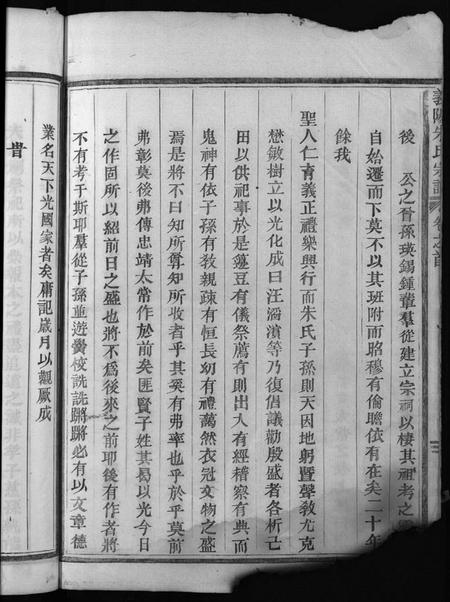 義陽朱氏宗譜 卷之首
後 公之晉孫瑛錫鍾輩羣從建立宗祠以棲其祖考之
自始遷而下莫不以其班附而昭穆有倫瞻依有在矣二十年
餘我
聖人仁育義正禮樂興行而朱氏子孫則天因地躬暨聲教尤克
懋敏樹立以光化成曰汪濱等乃復倡議勸殷盛者各析己
田以供祀事於是籩豆有儀祭薦有則出入有經稽察有典而
鬼神有依子孫有教親疎有恒長幼有禮藹然衣冠文物之盛
焉是將不曰知所尊知所收者乎其奚有弗率也乎於乎莫前
弗彰莫後弗傳忠靖太常作於前矣匪賢子姓其曷以光今日
之作固所以紹前日之盛也將不為後來之前耶後有作者將
不有考于斯耶羣從子孫並遊黌校詵詵蹡蹡必有以文章德
業名天下光國家者矣庸記歲月以觀厥成
昔